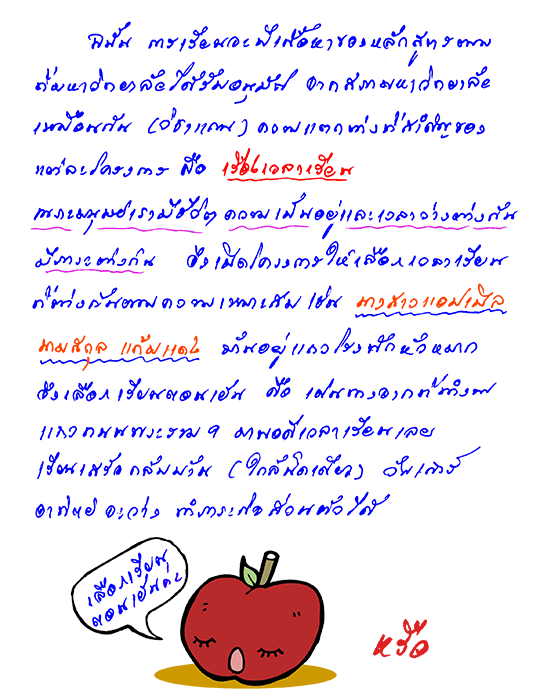 ฉนั้น การเรียนจะมีเนื้อหาของหลักสูตรตาม
ที่มหาวิทยาลัยได้รับอนุมัติ จากสภามหาวิทยาลัย
เหมือนกัน (วิชาแกน) ความแตกต่างที่สำคัญของ
แต่ละโครงการ คือ เรื่องเวลาเรียน
เพราะมนุษย์เรามีชีวิต ความเป็นอยู่และเวลาว่างต่างกัน
มีภาระต่างกัน จึงเปิดโครงการให้เลือกเวลาเรียน
ที่ต่างกันตามความเหมาะสม เช่น นางสาวแอปเปิล
นามสกุล แก้มแดง บ้านอยู่แถวโรงพักหัวหมาก
จึงเลือกเรียนตอนเย็น คือ เดินทางจากที่ทำงาน
แถวถนนพระราม ๙ มาพอดีเวลาเรียนเลย
เรียนเสร็จกลับบ้าน (ใกล้นิดเดียว) วันเสาร์
อาทิตย์ จะว่าง ทำภาระกิจส่วนตัวได้
เลือกเรียน
ตอนเย็นคะ
หรือ